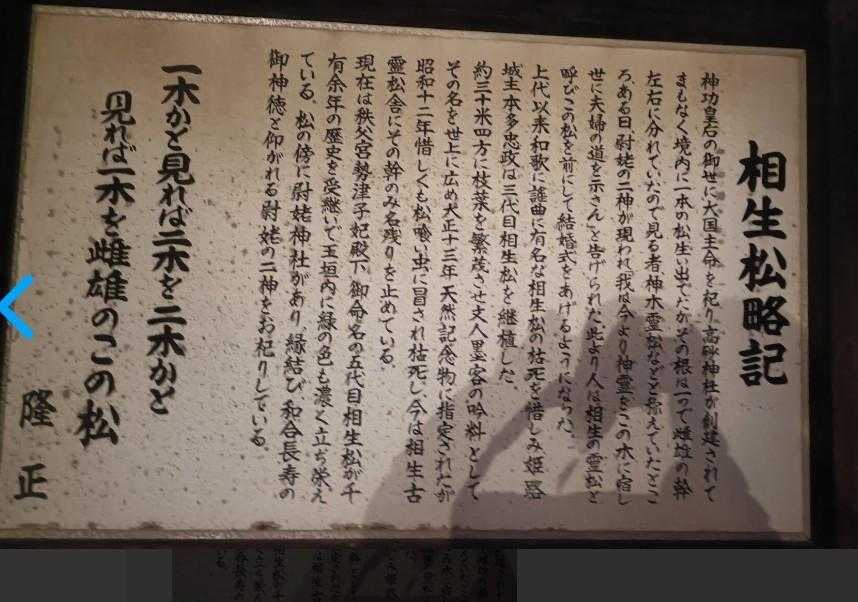 相生松略記
神功皇后の御世に大国主命を祀り高砂神社が創建されて
まもなく境内に一本の松生い出でたがその根は一つで雌雄の幹
左右に分れていたので見る者、神木霊松などと称えていたとこ
ろ、ある日尉姥の二神が現われ「我は今より神霊をこの木に宿し
世に夫婦の道を示さん」と告げられた。此より人は相生の霊松と
呼びこの松を前にして結婚式をあげるようになった。
上代以来和歌に謡曲に有名な相生松の枯死を惜しみ姫路
城主本多忠政は三代目相生松を継植した。
約三十米四方に枝葉を繁茂させ文人墨客の吟料として
その名を世上に広め大正十三年天然記念物に指定されたが
昭和十二年惜しくも松喰い虫に冒され枯死し、今は相生古
霊松舎にその幹のみ名残りを止めている。
現在は秩父宮勢津子妃殿下御命名の五代目相生松が千
有余年の歴史を受継いで玉垣内に緑の色も濃く立ち栄え
ている。松の傍に尉姥神社があり、縁結び、和合長寿の
御神徳と仰がれる尉姥の二神をお祀りしている。
一木かと見れば二木を二木かと
見れば一木を雌雄のこの松
隆正